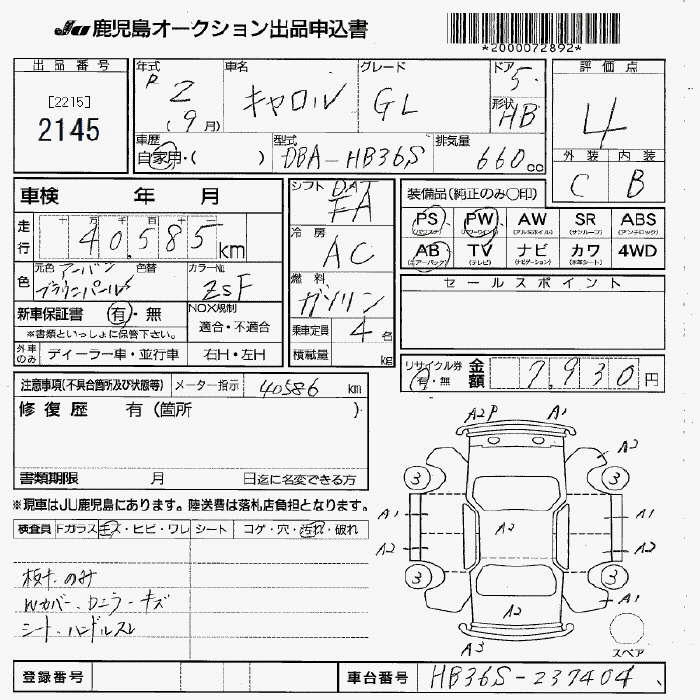 JU 鹿児島オークション出品申込書
*2000072892*
出品番号
[2215]
2145
年式
R 2
(9月)
車名
キャロル
グレード
GL
ドア
5
形状
HB
評価点
4
車歴
自家用・( )
型式
DBA-HB36S
排気量
660cc
外装 内装
C B
車検 年 月
シフト DAT
FA
装備品(純正のみ〇印)
走行
十 万 千 百 十
40,585km
冷房
AC
PS PW AW SR ABS
(パワステ) (パワーウインド) (アルミホイル) (サンルーフ) (アンチロック)
AB TV ナビ カワ 4WD
(エアーバック) (テレビ) (ナビゲーション) (本革シート)
色
元色 アーバン
ブラウンパール
色替
カラーNo.
ZSF
燃料
ガソリン
セールスポイント
新車保証書 有・無
※書類といっしょに保管下さい。
NOX規制
適合・不適合
乗車定員 4名
外車のみ ディーラー車・並行車 右H・左H
積載量 kg
リサイクル券
有・無
金額 7,930円
注意事項(不具合箇所及び状態等) メーター指示 40586 km
修復歴 有(箇所 )
書類期限 月 日迄に名変できる方
※現車はJU鹿児島にあります。陸送費は落札店負担となります。
検査員 Fガラス キズ・ヒビ・ワレ シート コゲ・穴・汚れ・破れ
A2P A1
A2
3 3
A1 A1
A2
A2 A2
3 3
A2
A1
A3
スペア
Wカバー、カニラーキズ
シート、ハンドルスレ
登録番号
車台番号 HB36S-237404